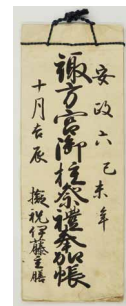 安政六己未年
諏方宮御柱祭禮奉加帳
十月吉辰
擬祝伊藤主膳